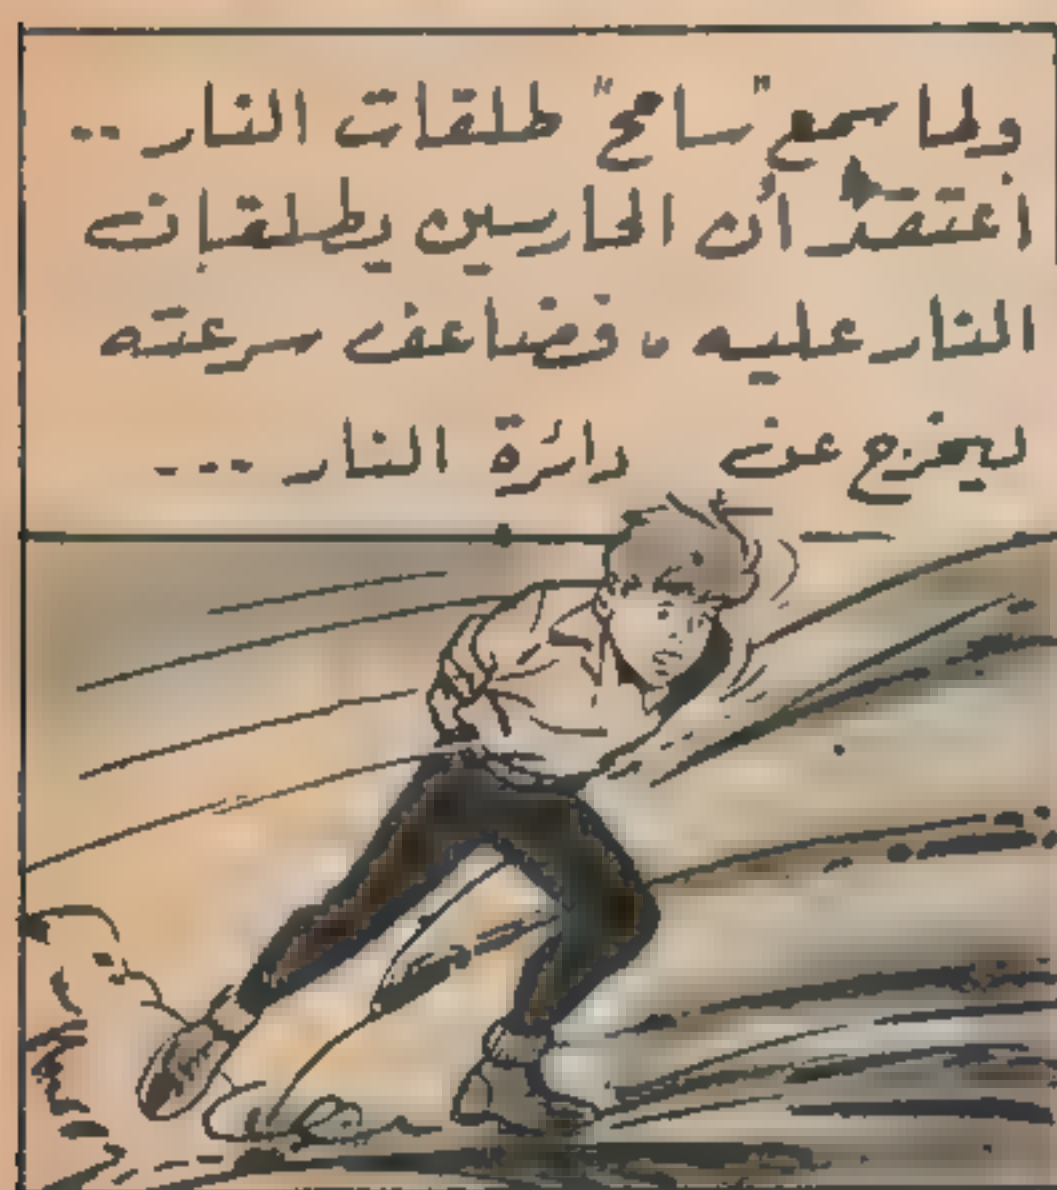 ولما سمع "سامح" طلقات النار ..
اعتقد أن الحارسين يطلقان
النار عليه ، فضاعف سرعته
ليخرج عن دائرة النار ...